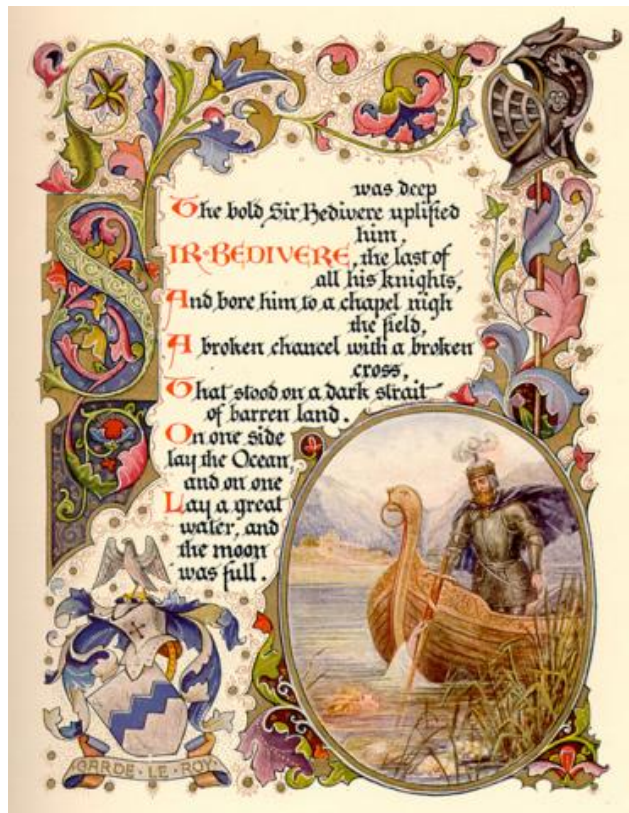 was deep
The bold Sir Bedivere uplifted
him,
SIR·BEDIVERE, the last of
all his knights,
And bore him to a chapel nigh
the field,
A broken chancel with a broken
cross,
That stood on a dark strait
of barren land.
On one side
lay the Ocean,
and on one
Lay a great
water, and
the moon
was full.
GARDE·LE·ROY·